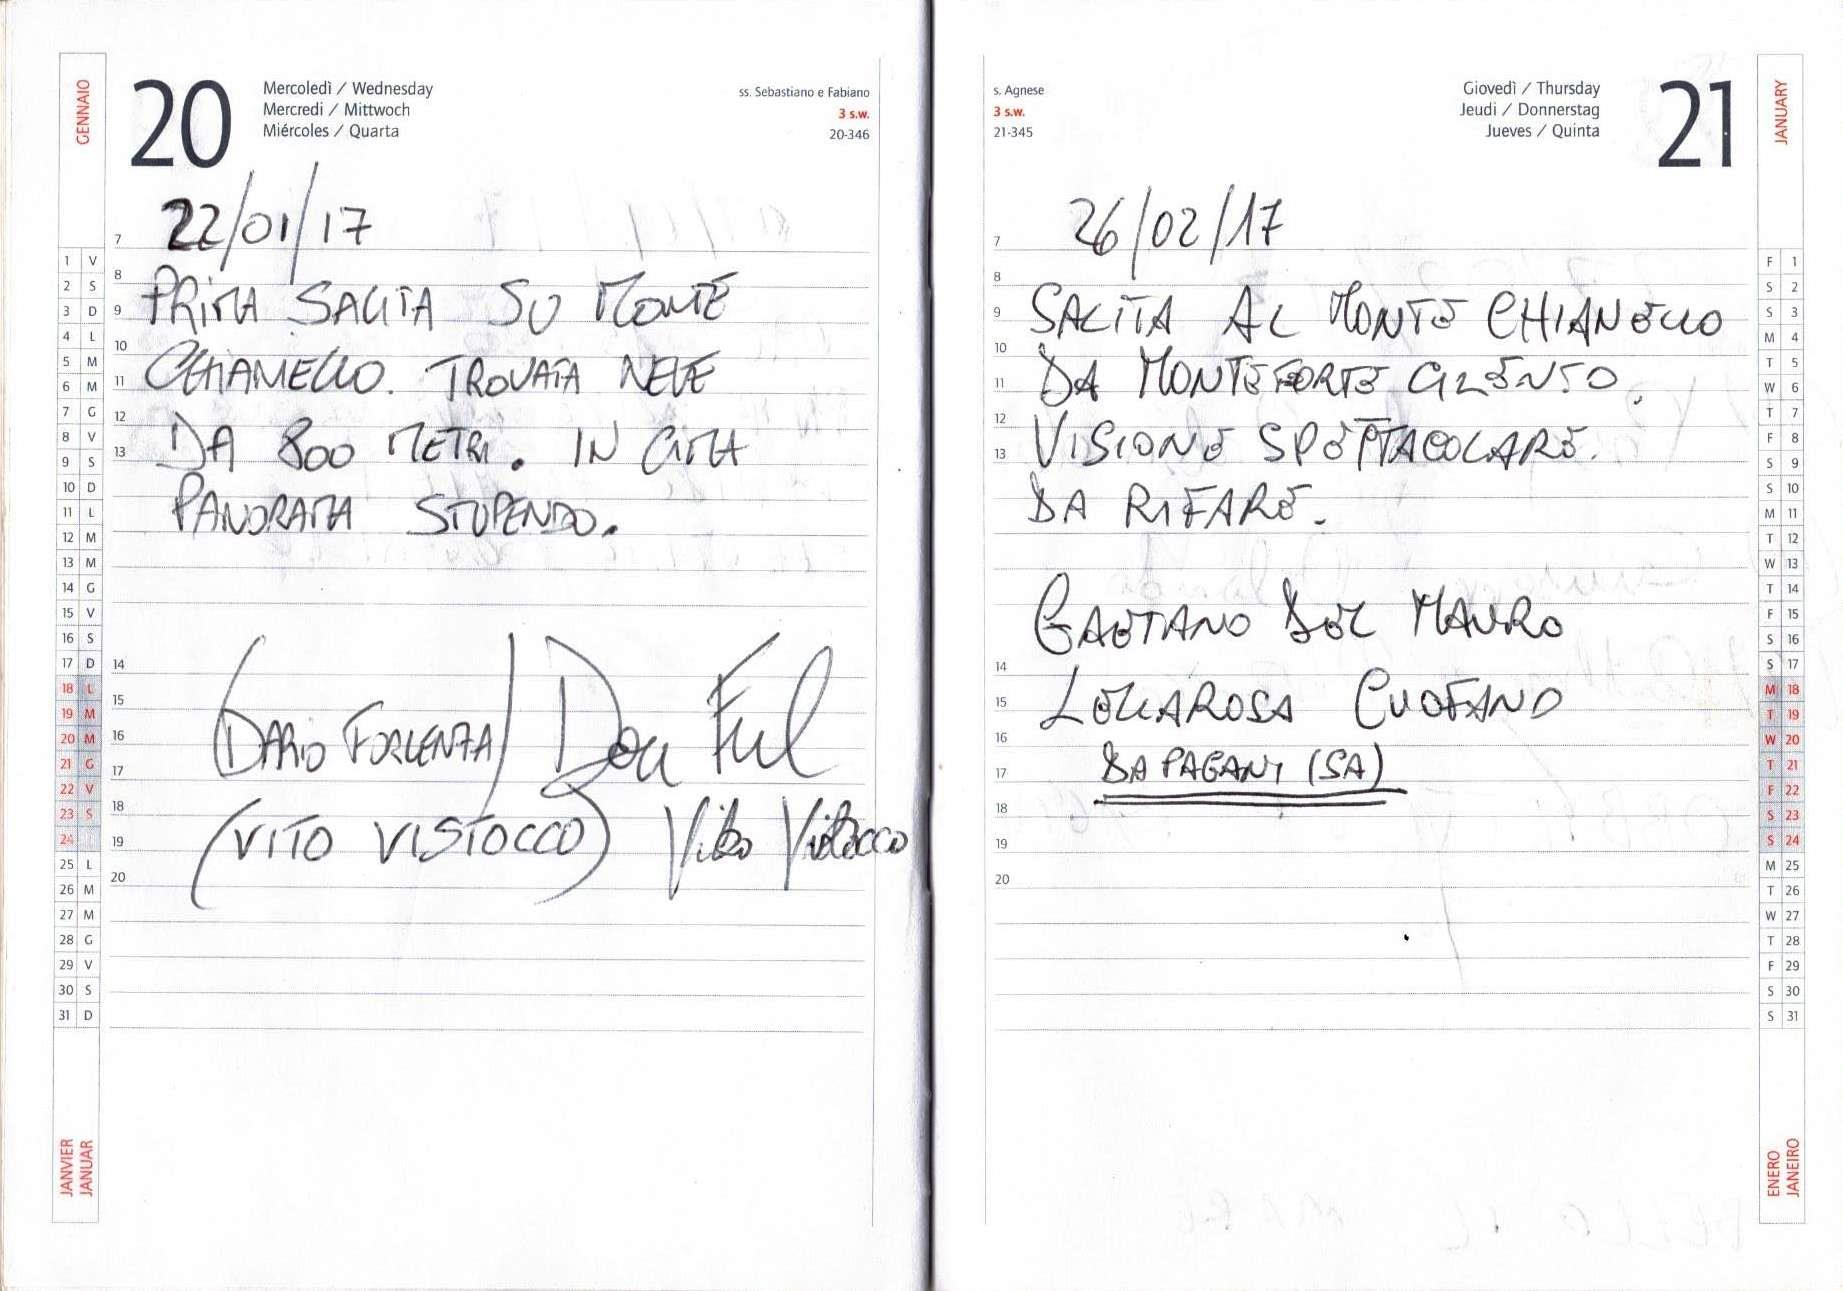 GENNAIO
20
Mercoledì / Wednesday
Mercredi / Mittwoch
Miércoles / Quarta
ss. Sebastiano e Fabiano
3 s.w.
20-346
22/01/17
PRIMA SALITA SU MONTE
CHIANELLO. TROVATA NEVE
DA 800 METRI. IN CIMA
PANORAMA STUPENDO.
(DARIO FORLENZA)
(VITO VISTOCCO) Vito Vistocco
7
8
9
10
11
12
13
14
15
16
17
18
19
20
1 V
2 S
3 D
4 L
5 M
6 M
7 G
8 V
9 S
10 D
11 L
12 M
13 M
14 G
15 V
16 S
17 D
18 L
19 M
20 M
21 G
22 V
23 S
24
25 L
26 M
27 M
28 G
29 V
30 S
31 D
JANVIER
JANUAR
s. Agnese
3 s.w.
21-345
Giovedì / Thursday
Jeudi / Donnerstag
Jueves / Quinta
21
JANUARY
26/02/17
SALITA AL MONTE CHIANELLO
DA MONTEFORTE CILENTO.
VISIONE SPETTACOLARE.
DA RIFARE.
GAETANO DEL MAURO
LELLAROSA CUOFANO
DA PAGANI (SA)
7
8
9
10
11
12
13
14
15
16
17
18
19
20
F 1
S 2
S 3
M 4
T 5
W 6
T 7
F 8
S 9
S 10
M 11
T 12
W 13
T 14
F 15
S 16
S 17
M 18
T 19
W 20
T 21
F 22
S 23
S 24
M 25
T 26
W 27
T 28
F 29
S 30
S 31
ENERO
JANEIRO